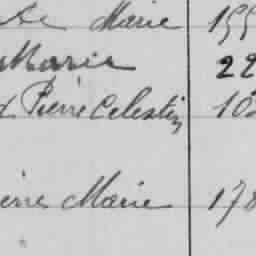 Marie 155
Marie 22
Pierre Celestin 10
Marie 178